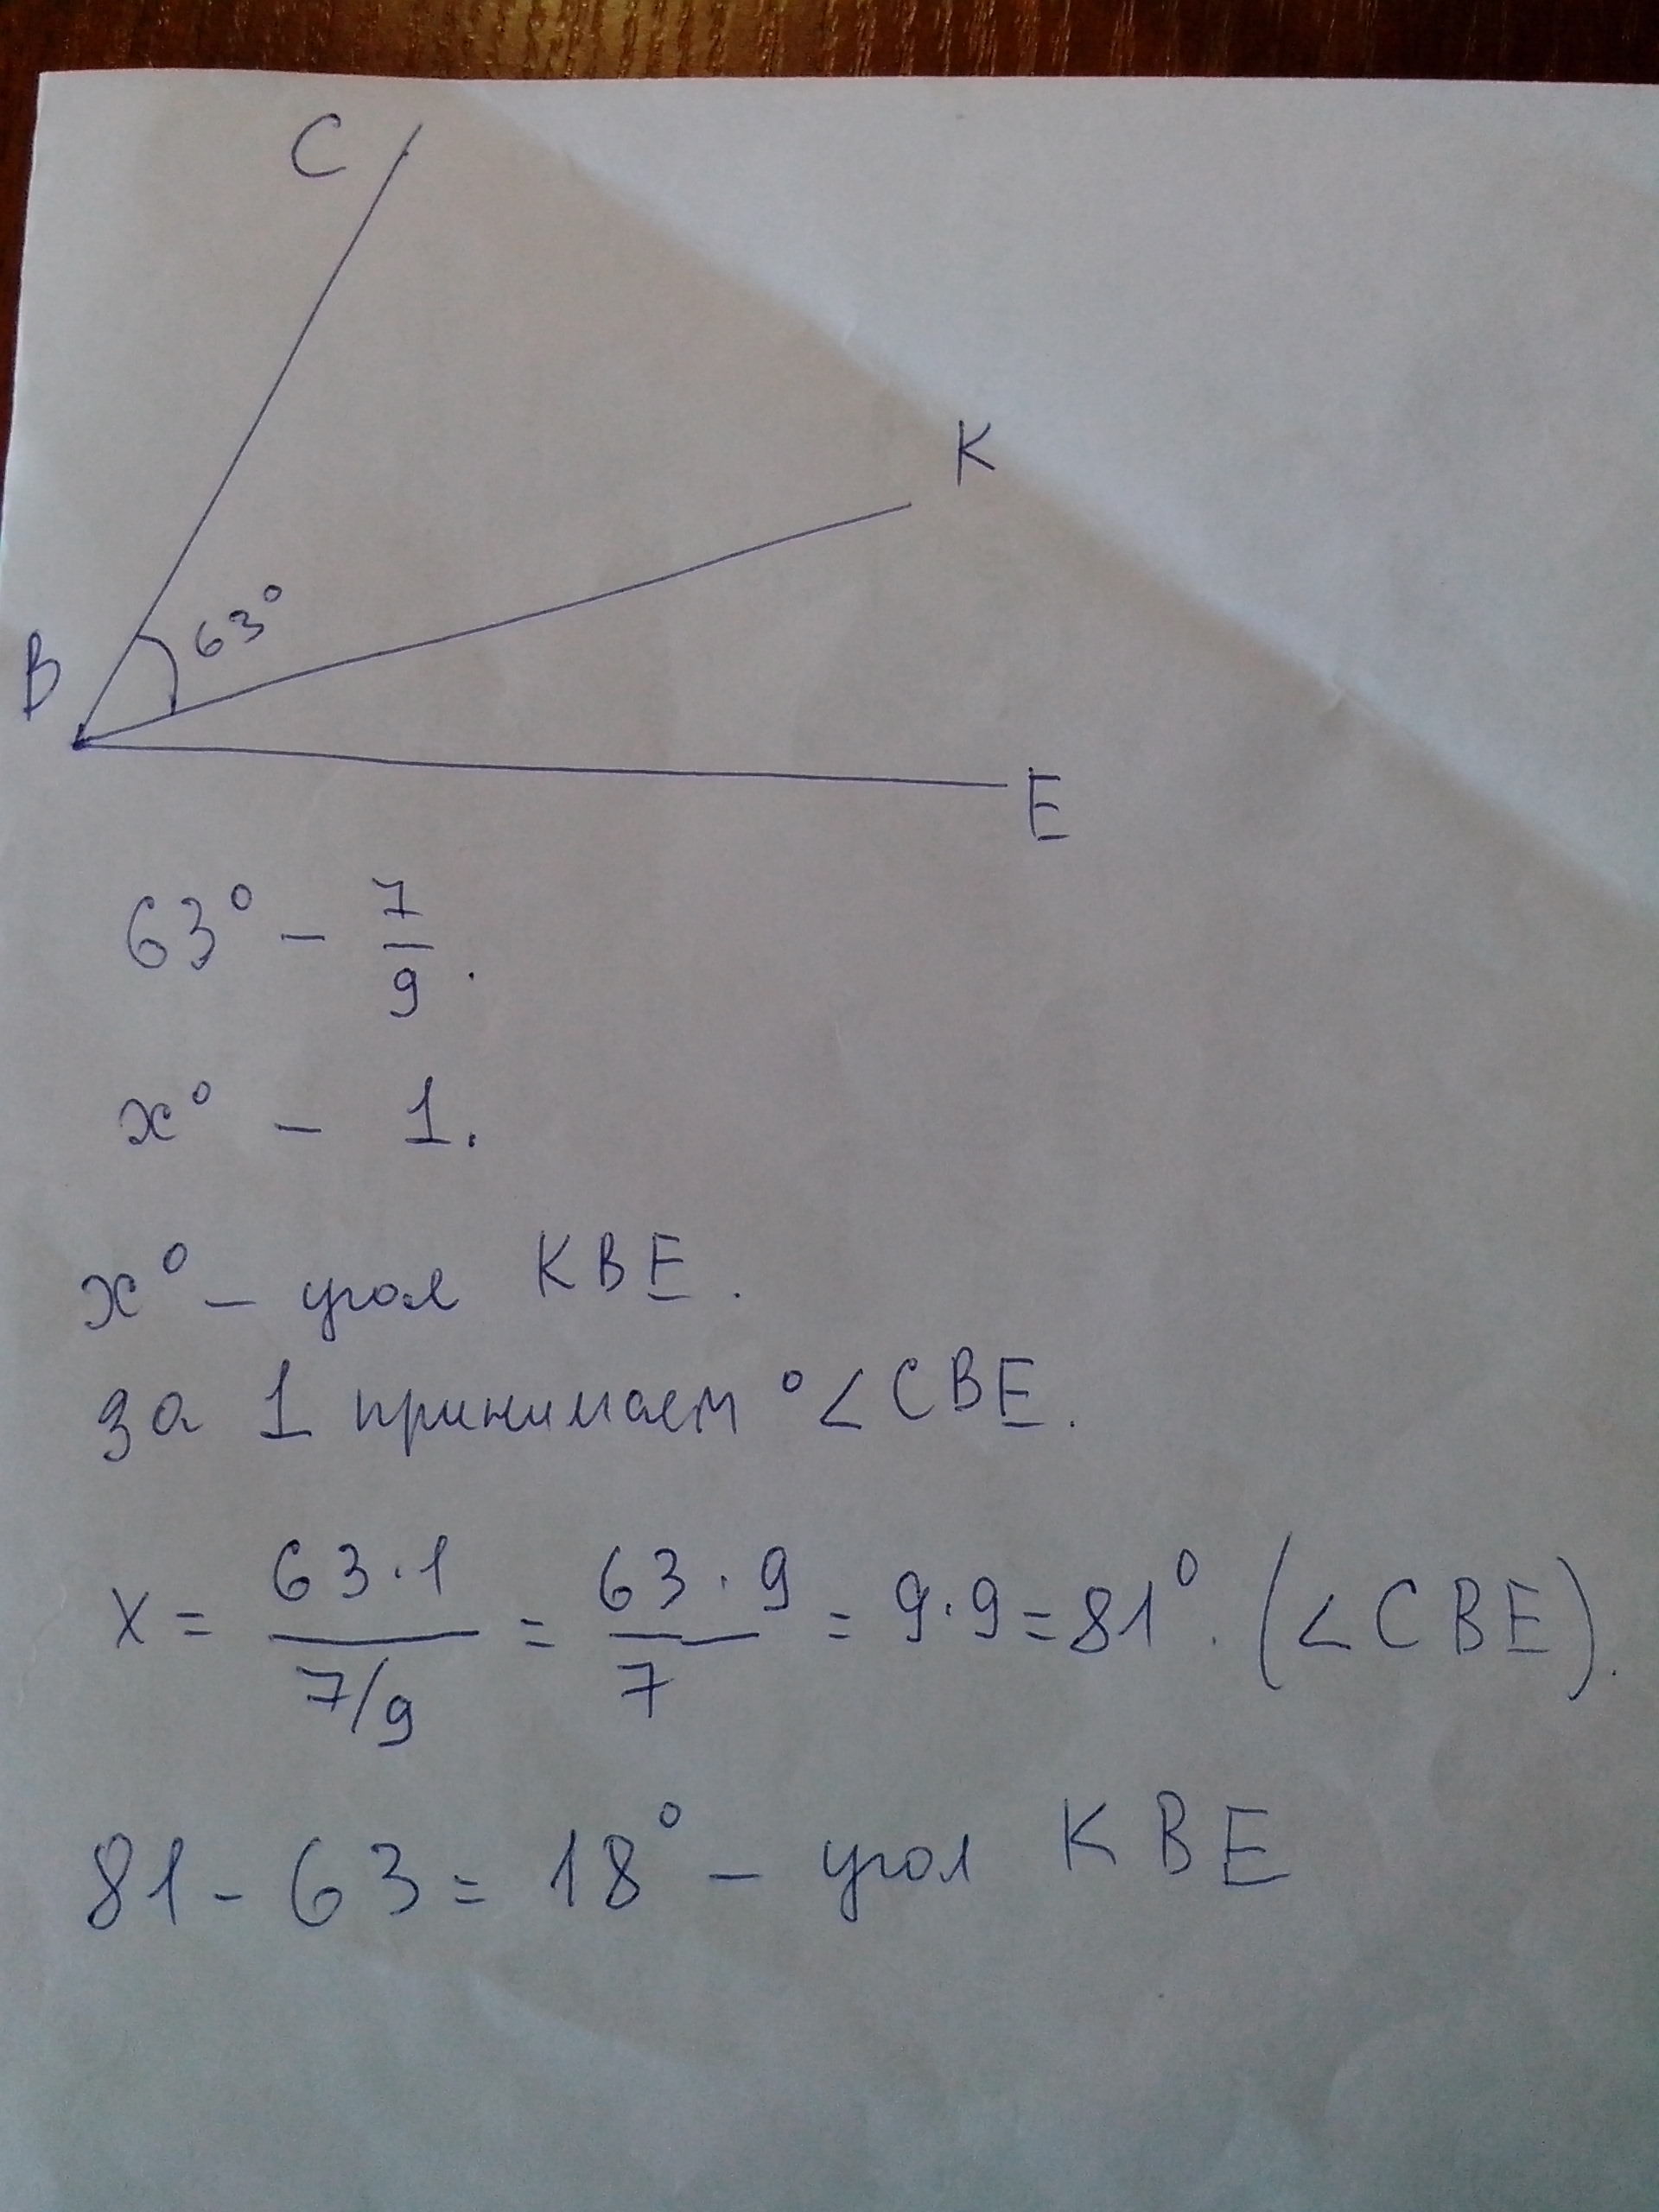 C
K
63°
B
E
63° - 7/9.
x° - 1.
x° - угол KBE.
за 1 принимаем °<CBE.
x = 63·1 / 7/9 = 63·9 / 7 = 9·9 = 81°. (<CBE).
81 - 63 = 18° - угол KBE